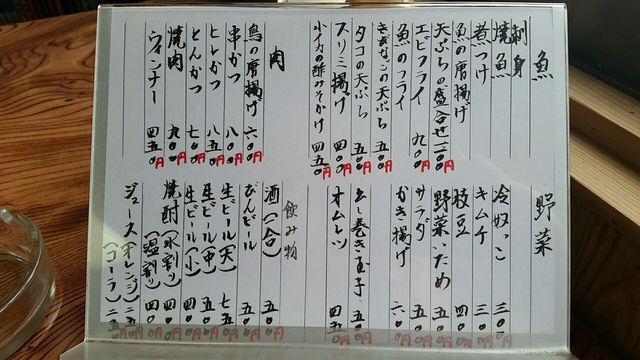 魚
刺身
焼魚
煮つけ
魚の唐揚げ
天ぷらの盛合せ 一二〇〇円
エビフライ 九〇〇円
魚のフライ
きすの天ぷら 五〇〇円
タコの天ぷら 五〇〇円
スリミ揚げ 四〇〇円
小イカの酢みそかけ 四五〇円
肉
鳥の唐揚げ 六〇〇円
串かつ 八〇〇円
ヒレかつ 八五〇円
とんかつ 七〇〇円
焼肉 九〇〇円
ウィンナー 四五〇円
野菜
冷奴っこ 三〇〇円
キムチ 三〇〇円
枝豆 四〇〇円
野菜いため 五〇〇円
サラダ 五〇〇円
かき揚げ 六〇〇円
出し巻き玉子 五〇〇円
オムレツ 四五〇円
飲み物
酒(一合) 五〇〇円
びんビール 五〇〇円
生ビール(大) 七五〇円
生ビール(中) 五〇〇円
生ビール(小) 四〇〇円
焼酎(水割り) 四〇〇円
(湯割り) 四〇〇円
ジュース(オレンジ) 二五〇円
(コーラ) 二五〇円